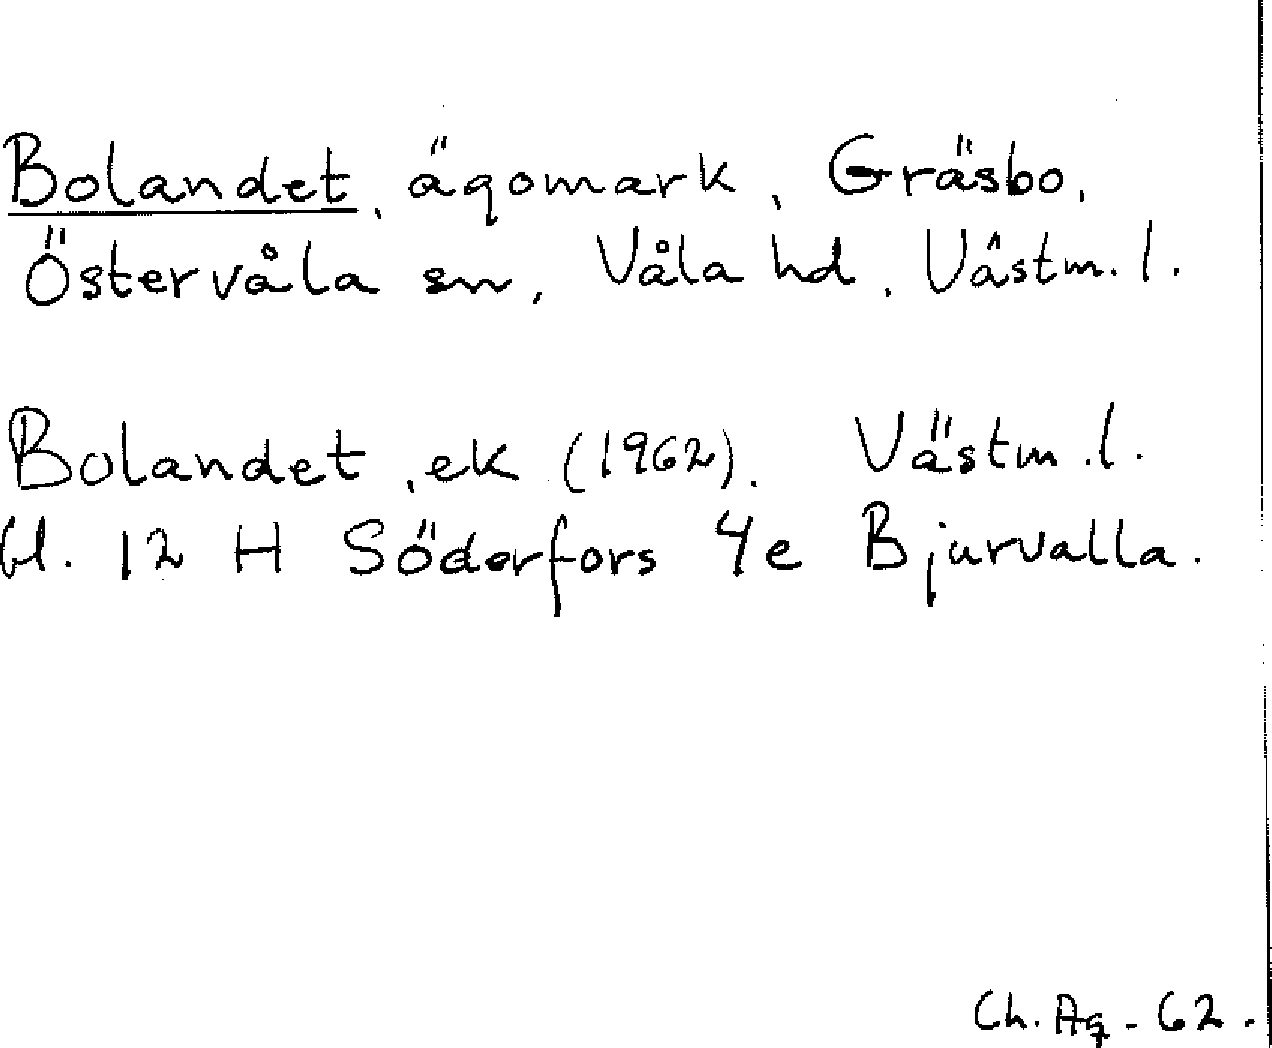 Bolandet, ägomark, Gräsbo,
Östervåla sn, Våla hd, Västm. l.
Bolandet, ek (1962). Västm. l.
bl. 12 H Söderfors 4e Bjurvalla.
Ch. Ag - 62.